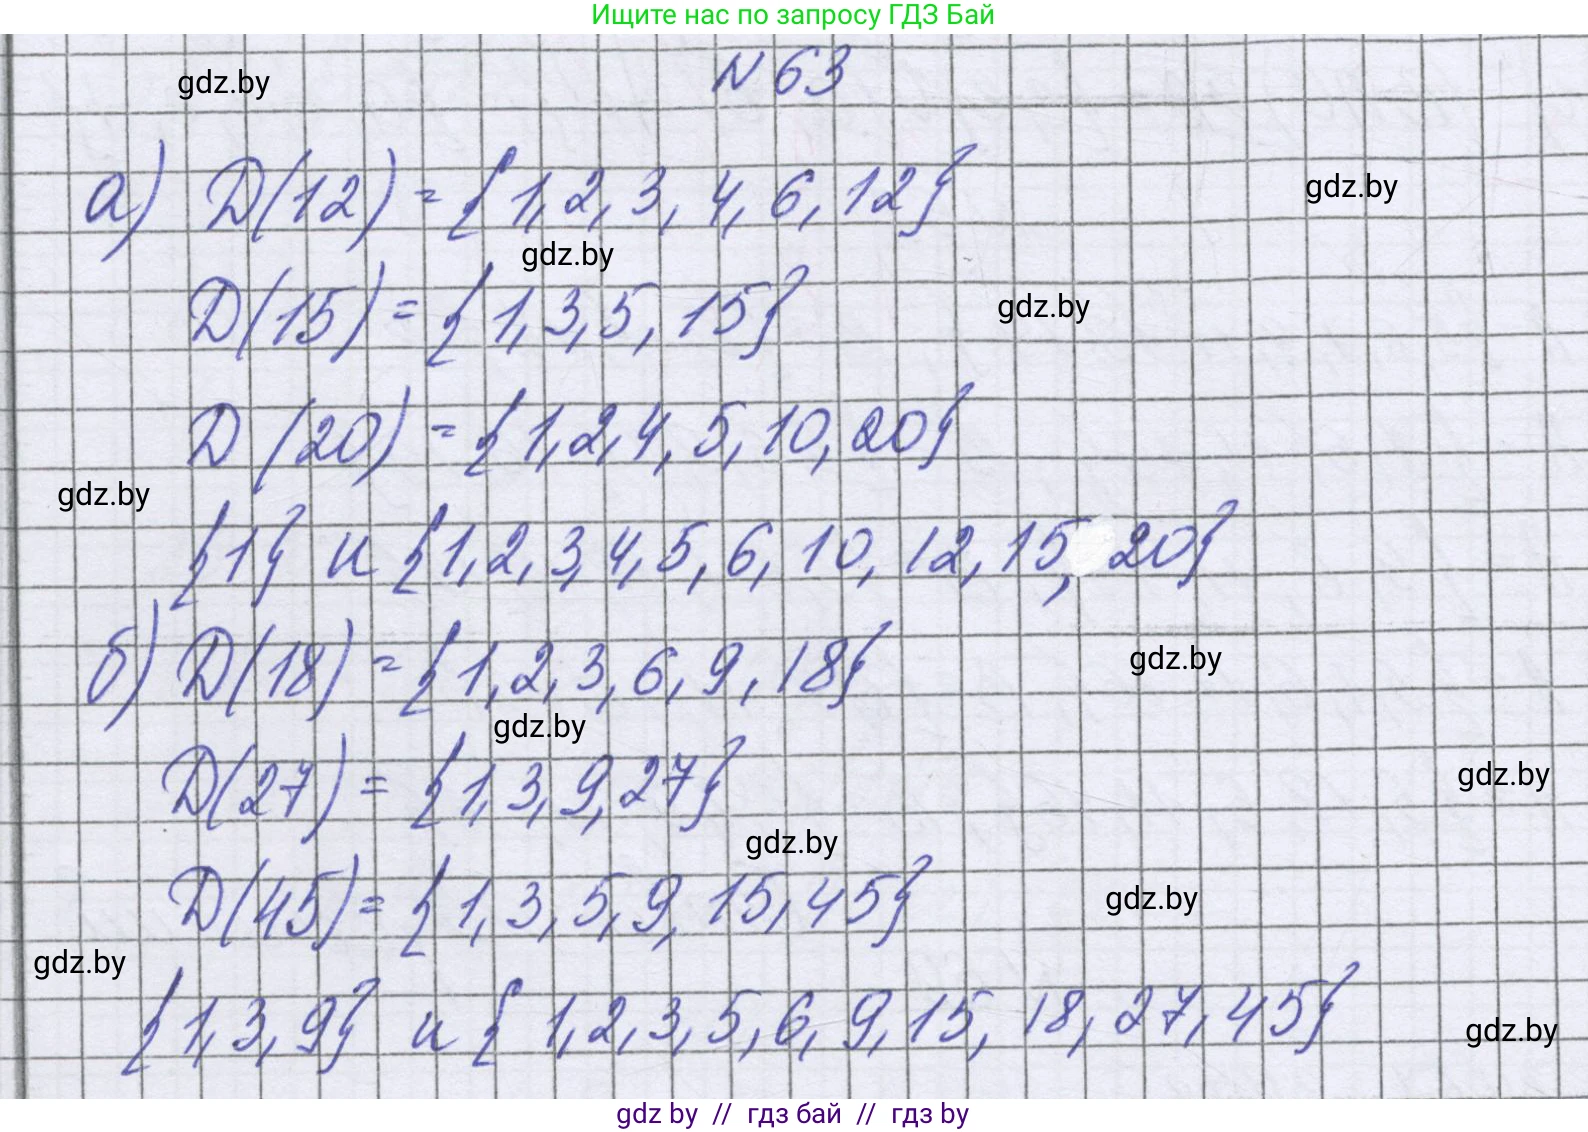 Ищите нас по запросу ГДЗ Бай
N 63
gdz.by
а) D(12) = {1, 2, 3, 4, 6, 12}
gdz.by
gdz.by
D(15) = {1, 3, 5, 15}
gdz.by
D(20) = {1, 2, 4, 5, 10, 20}
gdz.by
{1} и {1, 2, 3, 4, 5, 6, 10, 12, 15, 20}
б) D(18) = {1, 2, 3, 6, 9, 18}
gdz.by
gdz.by
D(27) = {1, 3, 9, 27}
gdz.by
gdz.by
D(45) = {1, 3, 5, 9, 15, 45}
gdz.by
gdz.by
{1, 3, 9} и {1, 2, 3, 5, 6, 9, 15, 18, 27, 45}
gdz.by
gdz by // гдз бай // гдз by